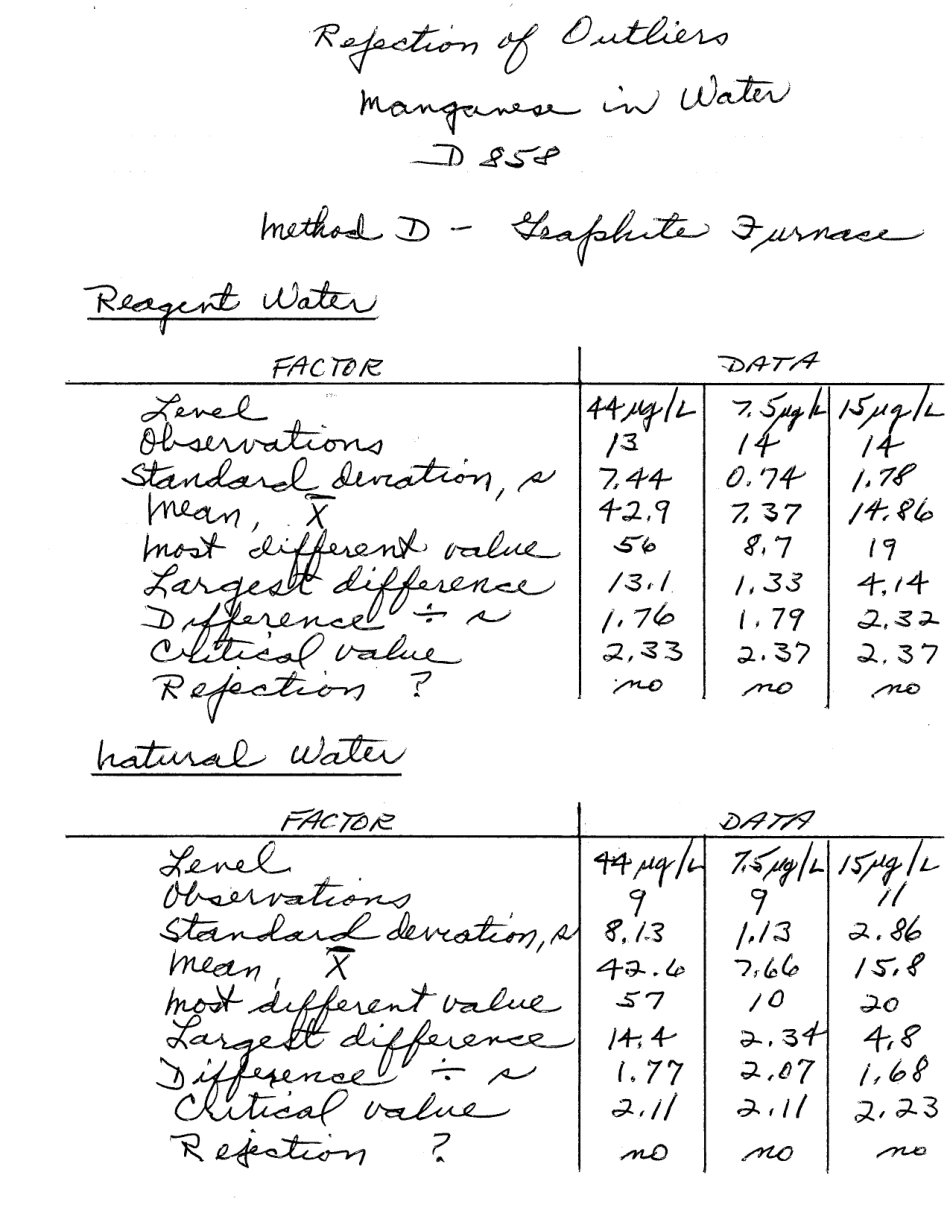 Rejection of Outliers
Manganese in Water
D 858
Method D - Graphite Furnace
Reagent Water
FACTOR DATA
Level 44 µg/L 7.5 µg/L 15 µg/L
Observations 13 14 14
Standard deviation, s 7.44 0.74 1.78
Mean, X̄ 42.9 7.37 14.86
Most different value 56 8.7 19
Largest difference 13.1 1.33 4.14
Difference ÷ s 1.76 1.79 2.32
Critical value 2.33 2.37 2.37
Rejection ? no no no
Natural Water
FACTOR DATA
Level 44 µg/L 7.5 µg/L 15 µg/L
Observations 9 9 11
Standard deviation, s 8.13 1.13 2.86
Mean, X̄ 42.6 7.66 15.8
Most different value 57 10 20
Largest difference 14.4 2.34 4.8
Difference ÷ s 1.77 2.07 1.68
Critical value 2.11 2.11 2.23
Rejection ? no no no